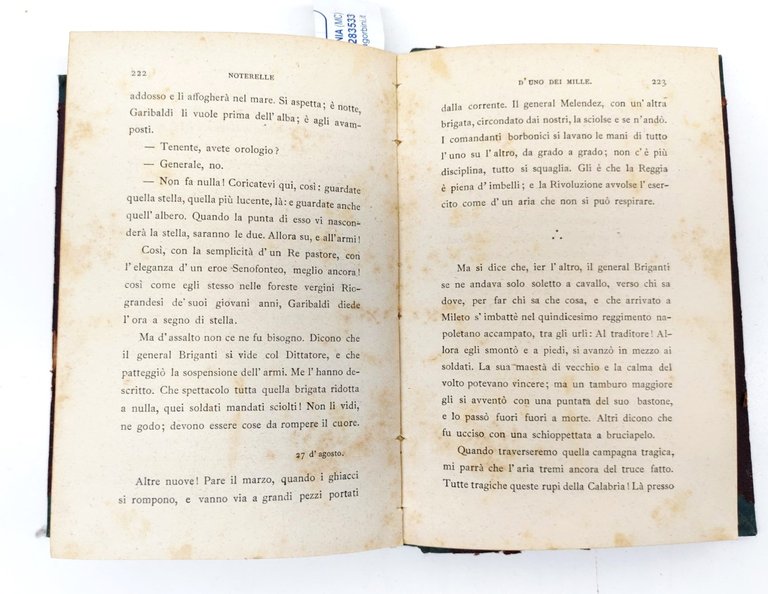 NIA (MC)
283533
agorbini.it
222 NOTERELLE
addosso e li affogherà nel mare. Si aspetta; è notte,
Garibaldi li vuole prima dell'alba; è agli avam-
posti.
— Tenente, avete orologio?
— Generale, no.
— Non fa nulla! Coricatevi qui, così: guardate
quella stella, quella più lucente, là: e guardate anche
quell'albero. Quando la punta di esso vi nascon-
derà la stella, saranno le due. Allora su, e all'armi!
Così, con la semplicità d'un Re pastore, con
l'eleganza d'un eroe Senofonteo, meglio ancora!
così come egli stesso nelle foreste vergini Rio-
grandesi de' suoi giovani anni, Garibaldi diede
l'ora a segno di stella.
Ma d'assalto non ce ne fu bisogno. Dicono che
il general Briganti si vide col Dittatore, e che
patteggiò la sospensione dell'armi. Me l'hanno de-
scritto. Che spettacolo tutta quella brigata ridotta
a nulla, quei soldati mandati sciolti! Non li vidi,
ne godo; devono essere cose da rompere il cuore.
27 d'agosto.
Altre nuove! Pare il marzo, quando i ghiacci
si rompono, e vanno via a grandi pezzi portati
D'UNO DEI MILLE. 223
dalla corrente. Il general Melendez, con un'altra
brigata, circondato dai nostri, la sciolse e se n'andò.
I comandanti borbonici si lavano le mani di tutto
l'uno su l'altro, da grado a grado; non c'è più
disciplina, tutto si squaglia. Gli è che la Reggia
è piena d'imbelli; e la Rivoluzione avvolse l'eser-
cito come d'un aria che non si può respirare.
Ma si dice che, ier l'altro, il general Briganti
se ne andava solo soletto a cavallo, verso chi sa
dove, per far chi sa che cosa, e che arrivato a
Mileto s'imbattè nel quindicesimo reggimento na-
poletano accampato, tra gli urli: Al traditore! Al-
lora egli smontò e a piedi, si avanzò in mezzo ai
soldati. La sua maestà di vecchio e la calma del
volto potevano vincere; ma un tamburo maggiore
gli si avventò con una puntata del suo bastone,
e lo passò fuori fuori a morte. Altri dicono che
fu ucciso con una schioppettata a bruciapelo.
Quando traverseremo quella campagna tragica,
mi parrà che l'aria tremi ancora del truce fatto.
Tutte tragiche queste rupi della Calabria! Là presso